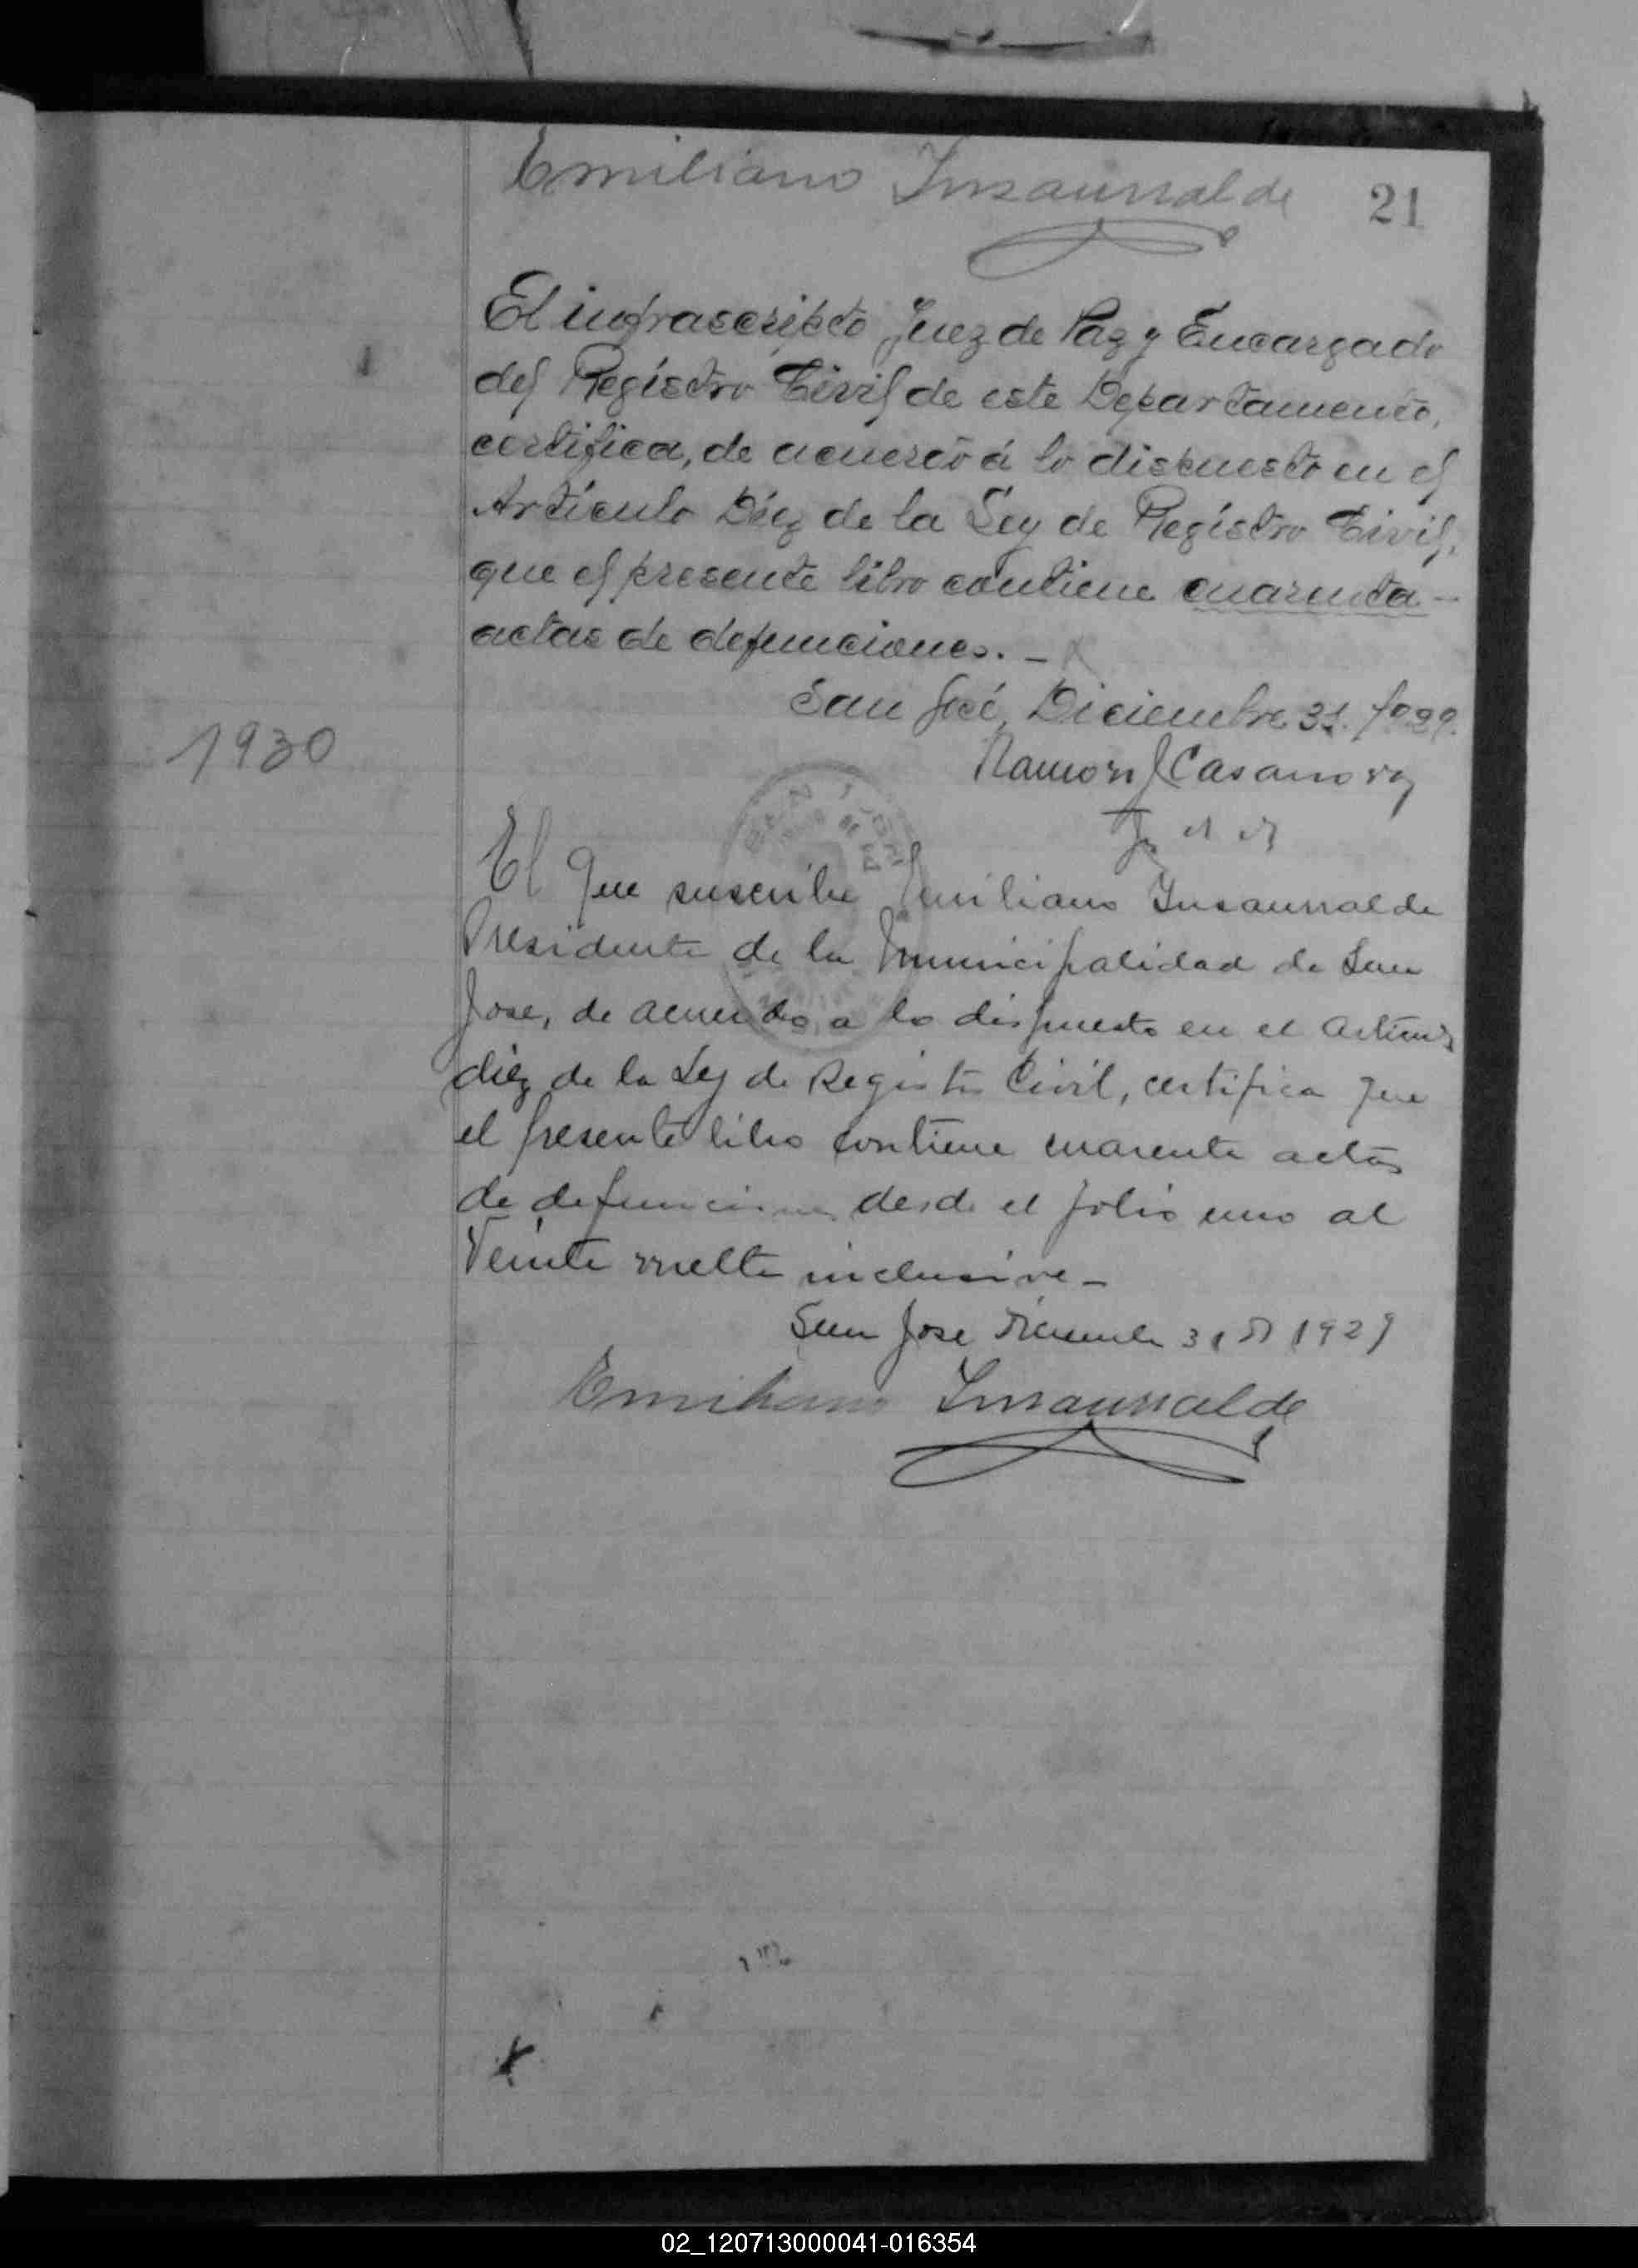 Emiliano Insaurralde
21
El infrascripto Juez de Paz y Encargado
del Registro Civil de este Departamento,
certifica, de acuerdo á lo dispuesto en el
Artículo Diez de la Ley de Registro Civil,
que el presente libro contiene cuarenta -
actas de defunciones. -
San José, Diciembre 31. 1929.
Ramon J Casanova
1930
El que suscribe Emiliano Insaurralde
Presidente de la Municipalidad de San
Jose, de acuerdo a lo dispuesto en el articulo
diez de la Ley de Registro Civil, certifica que
el presente libro contiene cuarenta actas
de defunciones desde el folio uno al
Veinte vuelta inclusive -
San Jose Diciembre 31 de 1929
Emiliano Insaurralde
02_120713000041-016354